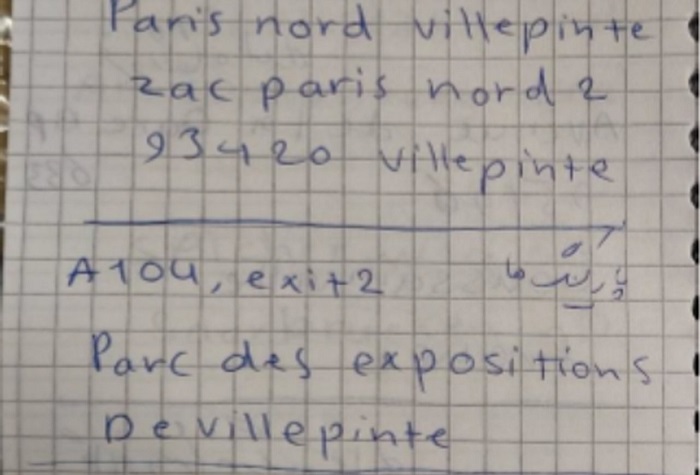 Paris nord villepinte
zac paris nord 2
93420 villepinte
A104, exit2
Parc des expositions
De villepinte